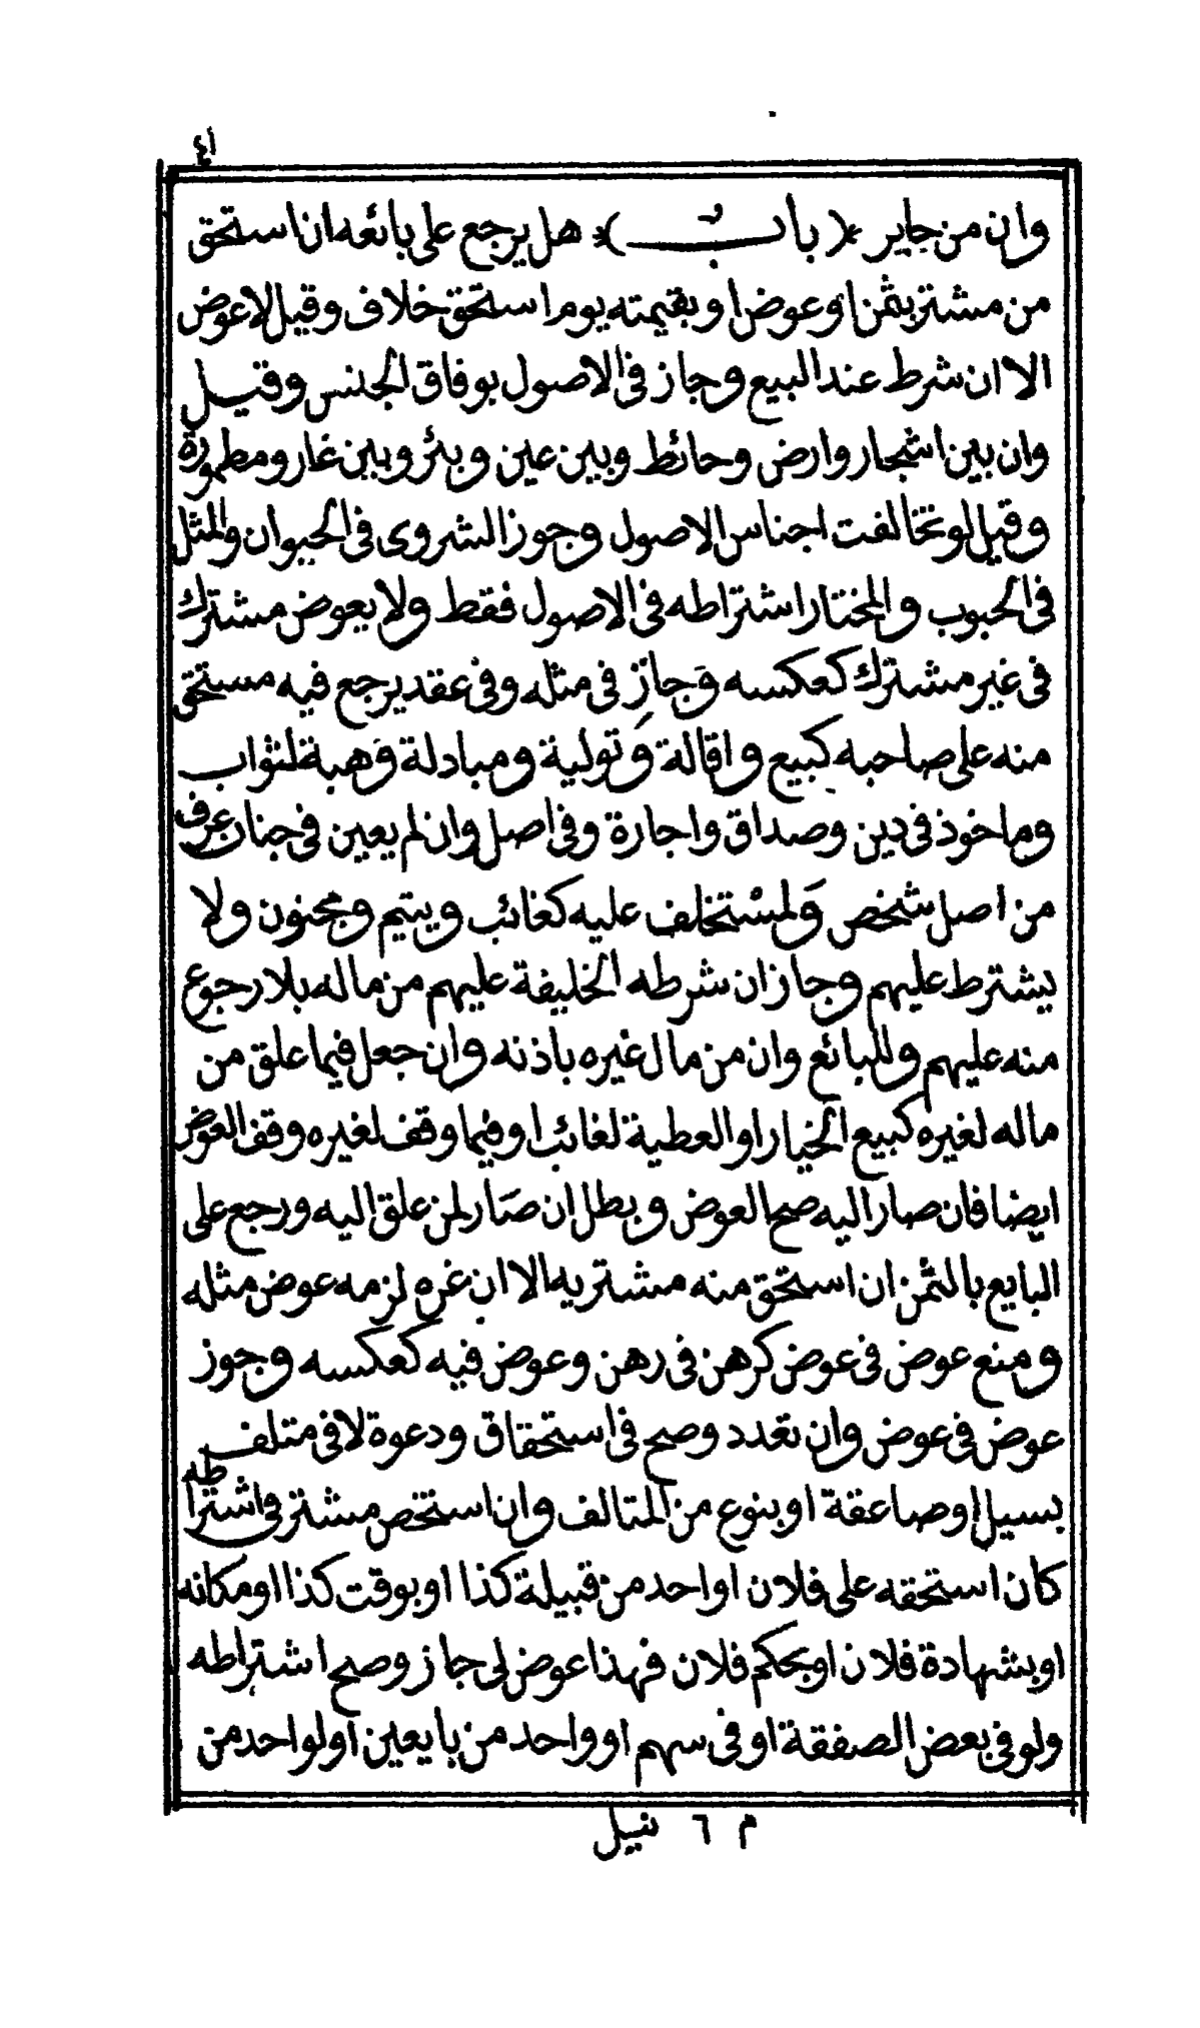 ٤١
وان من جاير ﴿ باب ﴾ هل يرجع على بائعه ان استحق
من مشتر بثمن او عوض او بقيمته يوم استحق خلاف وقيل لا عوض
الا ان شرط عند البيع وجاز في الاصول بوفاق الجنس وقيل
وان بين اشجار وارض وحائط وبين عين وبئر وبين غار ومطمورة
وقيل لو تخالفت اجناس الاصول وجوز الشروى في الحيوان والمثل
في الحبوب والمختار اشتراطه في الاصول فقط ولا يعوض مشترك
في غير مشترك كعكسه وَجاز في مثله وفي عقد يرجع فيه مستحق
منه على صاحبه كبيع واقالة وتولية ومبادلة وَهبة لثواب
وماخوذ في دين وصداق واجارة وفي اصل وان لم يعين في جنان عرف
من اصل شخص وَلمسْتخلف عليه كغائب ويتيم ومجنون ولا
يشترط عليهم وجاز ان شرطه الخليفة عليهم من ماله بلا رجوع
منه عليهم وللبائع وان من مال غيره باذنه وان جعل فيما علق من
ماله لغيره كبيع الخيار او العطية لغائب او فيما وقف لغيره وقف العوض
ايضا فان صار اليه صح العوض وبطل ان صَار لمن علق اليه ورجع على
البايع بالثمن ان استحق منه مشتريه الا ان غره لزمه عوض مثله
ومنع عوض في عوض كرهن في رهن وعوض فيه كعكسه وجوز
عوض في عوض وان تعدد وصح في استحقاق ودعوة لا في متلف
بسيل او صاعقة او بنوع من المتالف وان استخص مشتر في اشتراطه
كان استحقه على فلان او احد من قبيلة كذا او بوقت كذا او مكانه
او بشهادة فلان او بحكم فلان فهذا عوض لي جاز وصح اشتراطه
ولو في بعض الصفقة او في سهم او واحد من بايعين او لواحد من
م ٦ نيل